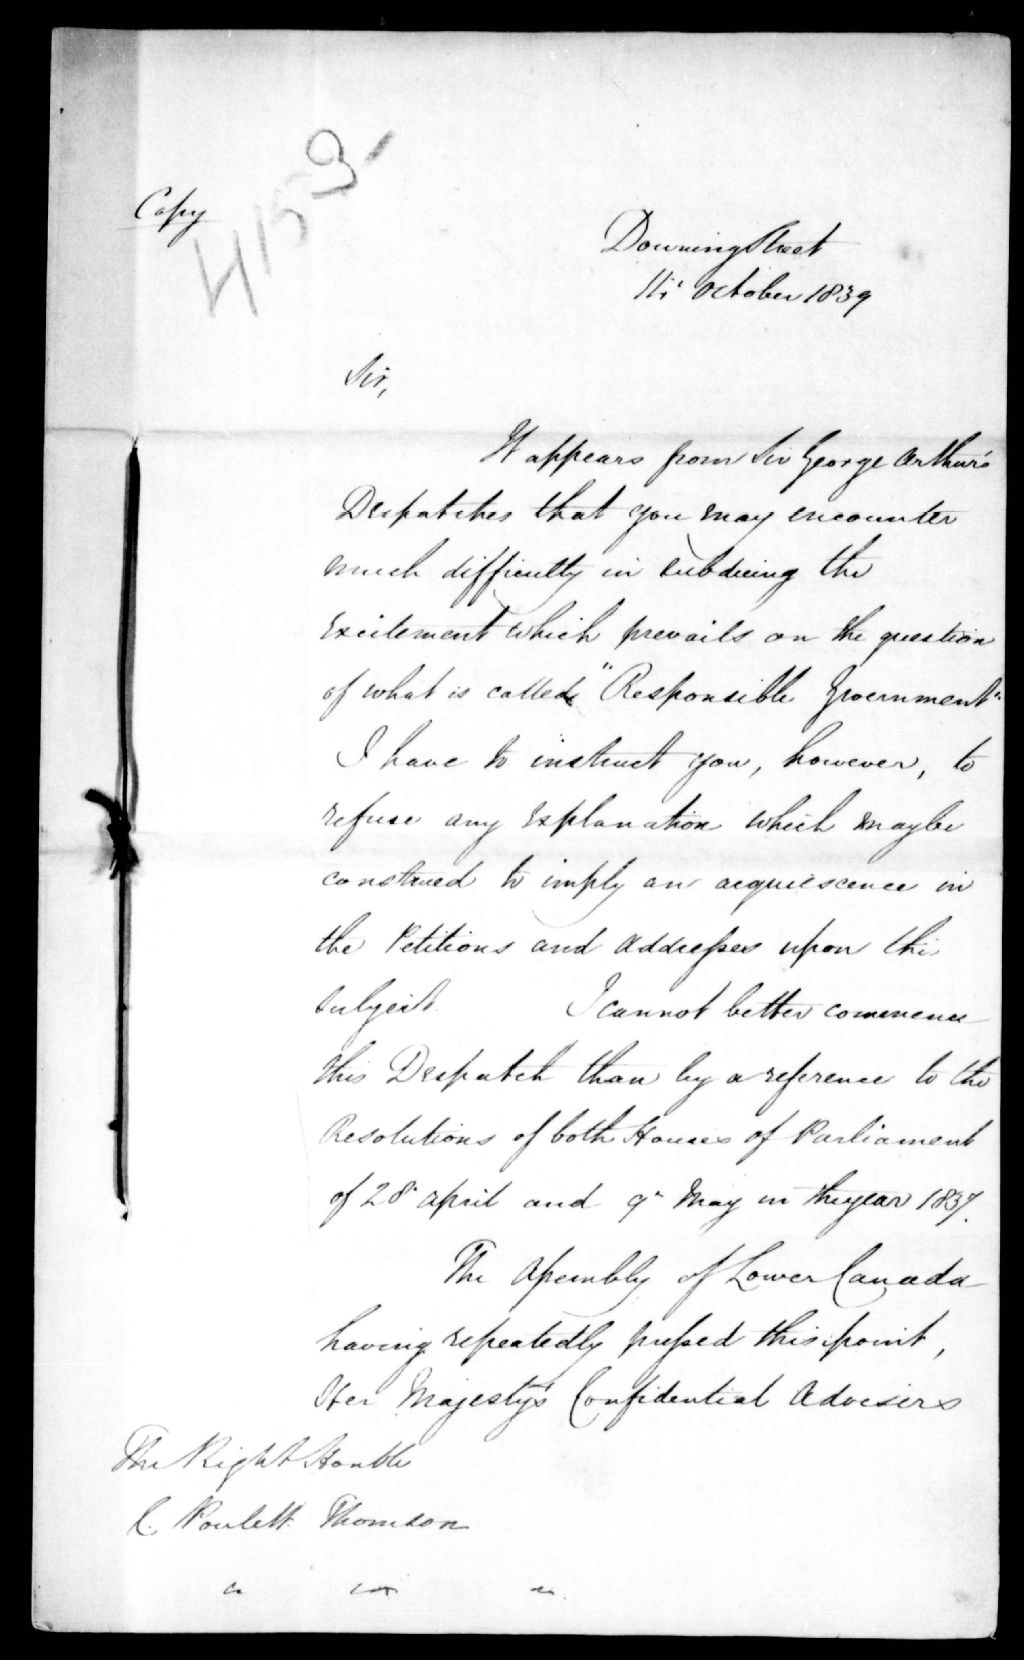 4159
Copy
Downing Street
14th October 1839
Sir,
It appears from Sir George Arthur's
Despatches that you may encounter
much difficulty in subduing the
excitement which prevails on the question
of what is called "Responsible Government"
I have to instruct you, however, to
refuse any explanation which may be
construed to imply an acquiescence in
the Petitions and Addresses upon this
subject. I cannot better commence
this Despatch than by a reference to the
Resolutions of both Houses of Parliament
of 28th April and 9th May in the year 1837.
The Assembly of Lower Canada
having repeatedly pressed this point,
Her Majesty's Confidential Advisers
The Right Honble
C. Poulett Thomson